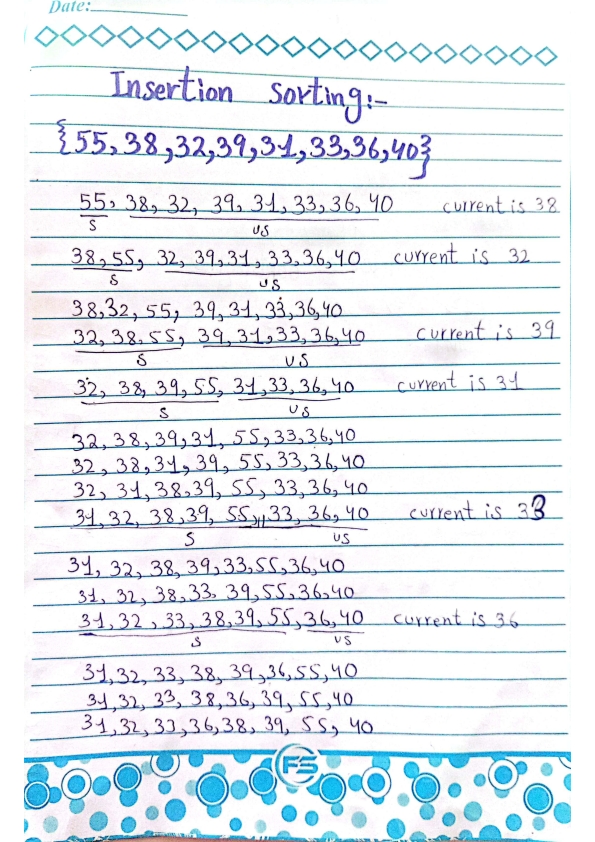 Date:
Insertion Sorting:-
{55,38,32,39,31,33,36,40}
55, 38, 32, 39, 31, 33, 36, 40 current is 38
S US
38,55, 32, 39,31, 33,36,40 current is 32
S US
38,32, 55, 39,31,33,36,40
32, 38, 55, 39,31,33,36,40 current is 39
S US
32, 38, 39, 55, 31,33,36,40 current is 31
S US
32, 38, 39, 31, 55, 33, 36, 40
32, 38, 31, 39, 55, 33, 36, 40
32, 31, 38, 39, 55, 33, 36, 40
31, 32, 38, 39, 55, || 33, 36, 40 current is 33
S US
31, 32, 38, 39, 33, 55, 36, 40
31, 32, 38, 33, 39, 55, 36, 40
31, 32, 33, 38, 39, 55, 36, 40 current is 36
S US
31, 32, 33, 38, 39, 36, 55, 40
31, 32, 33, 38, 36, 39, 55, 40
31, 32, 33, 36, 38, 39, 55, 40
FS